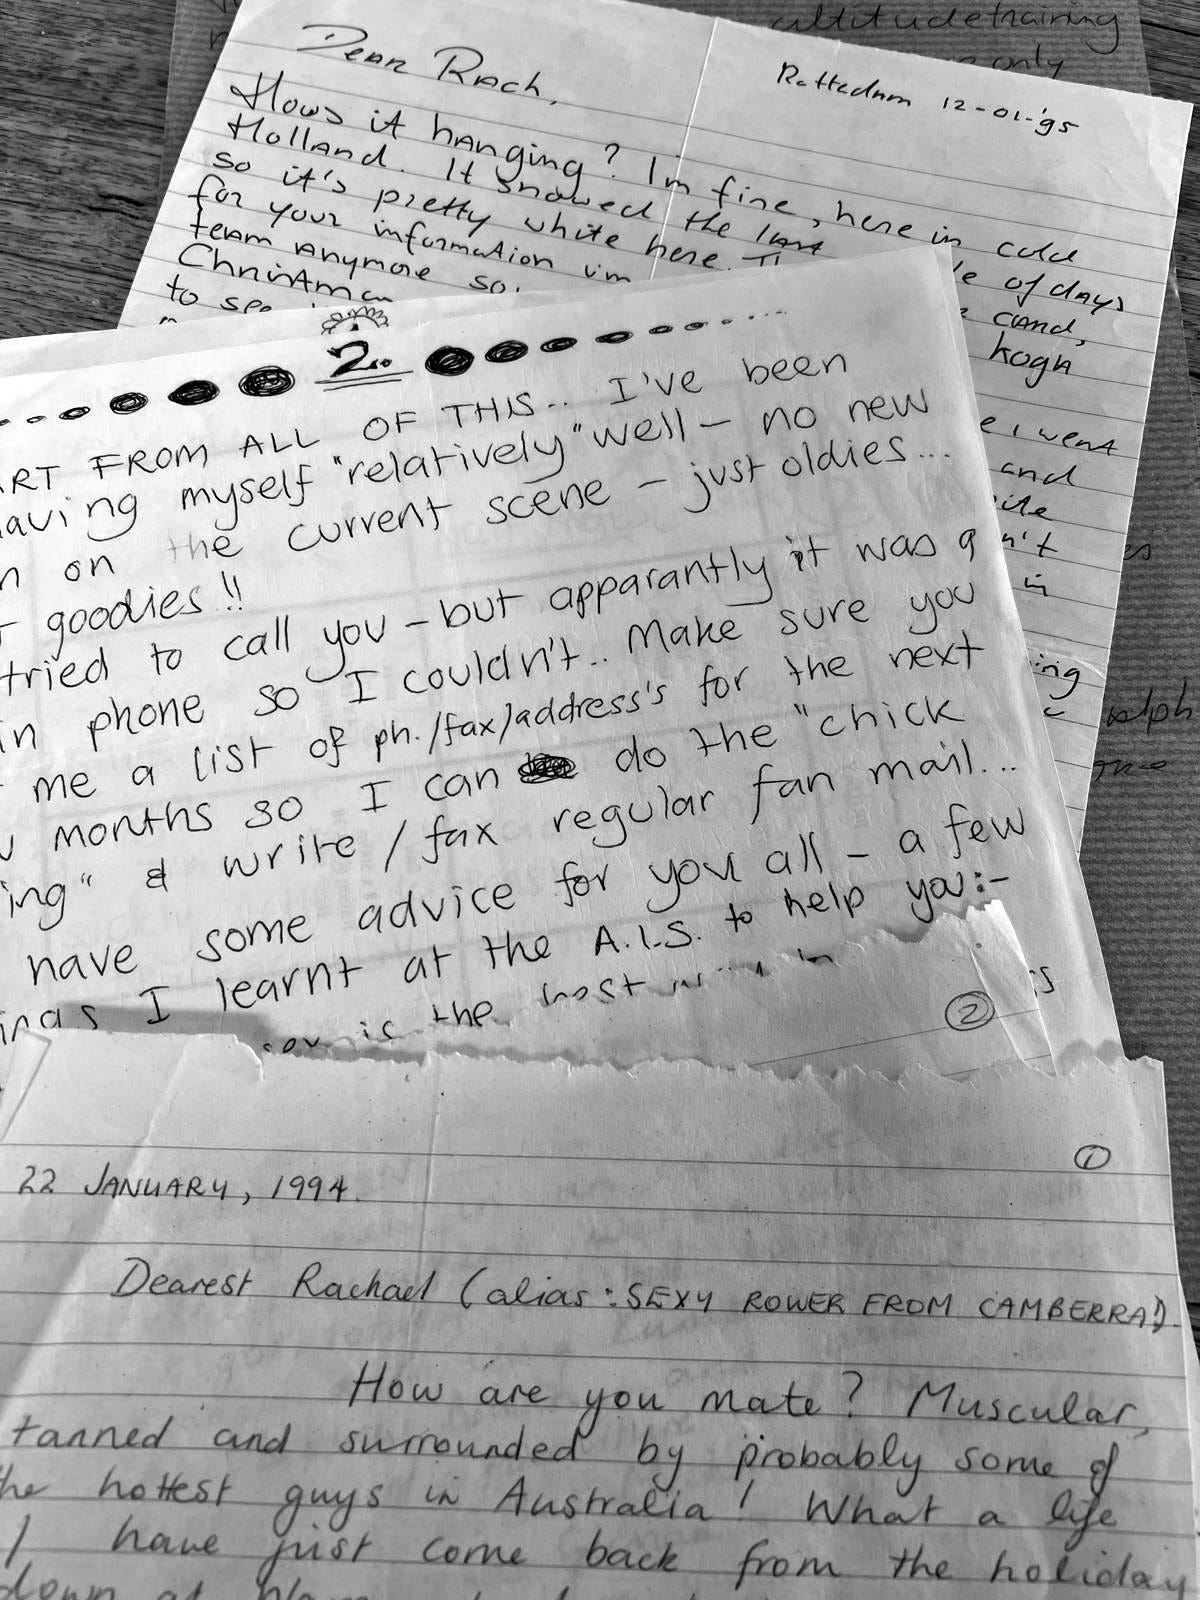 altitude training
only
Dear Rach,
Rottedam 12-01-'95
Hows it hanging? I'm fine, here in cold
Holland. It snowed the last
le of days
so it's pretty white here.
cand,
for your information i'm
hogh
team anymore so
Christma
to see
e i went
and
ite
n't
in
ing
2..
ART FROM ALL OF THIS.. I've been
having myself "relatively" well - no new
n on the current scene - just oldies...
t goodies!!
tried to call you - but apparantly it was a
in phone so I couldn't.. Make sure you
me a list of ph./fax/address's for the next
w months so I can do the "chick
ing" & write / fax regular fan mail...
have some advice for you all - a few
ings I learnt at the A.I.S. to help you:-
is the most
2
1
22 JANUARY, 1994.
Dearest Rachael (alias: SEXY ROWER FROM CAMBERRA!).
How are you mate? Muscular,
tanned and surrounded by probably some of
the hottest guys in Australia! What a life
I have just come back from the holiday
down at